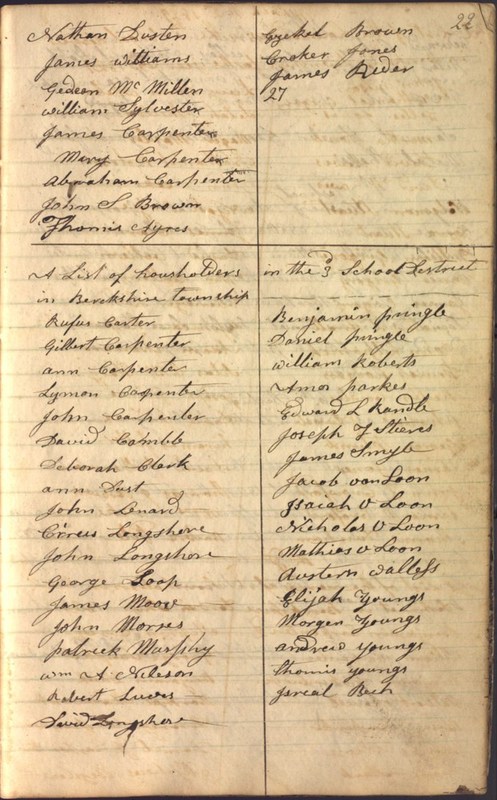 22
Nathan Dusten
James Williams
Gedeon Mc Millen
William Sylvester
James Carpenter
Mary Carpenter
Abraham Carpenter
John S Brown
Thomis Ayres
Ezekel Brown
Croker Jones
James Rider
27
A List of housholders in the 3d School Destrict
in Berkshire township
Rufus Carter
Gilbert Carpenter
ann Carpenter
Lymon Carpenter
John Carpenter
David Cambble
Deborah Clark
ann Dust
John Lenard
Cireus Longshore
John Longshore
George Loop
James Moor
John Morses
patrick Murphy
Wm A Nileson
Robert Lucas
David Longshore
Benjamin pringle
Daniel pringle
William Roberts
Amos parkes
Edward L Randle
Joseph T Stieres
James Smyle
Jacob van Loon
Isaiah V Loon
Nicholas V Loon
Mathias v Loon
Austern
Elijah Youngs
Morgen Youngs
andrew youngs
thomis youngs
Jsreal